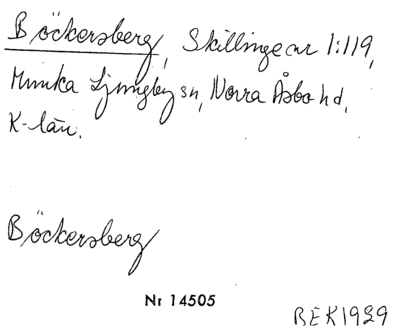 Böckersberg, Skillinge nr 1:119,
Munka Ljungby sn, Norra Åsbo hd,
K-län.
Böckersberg
Nr 14505
BEK1929